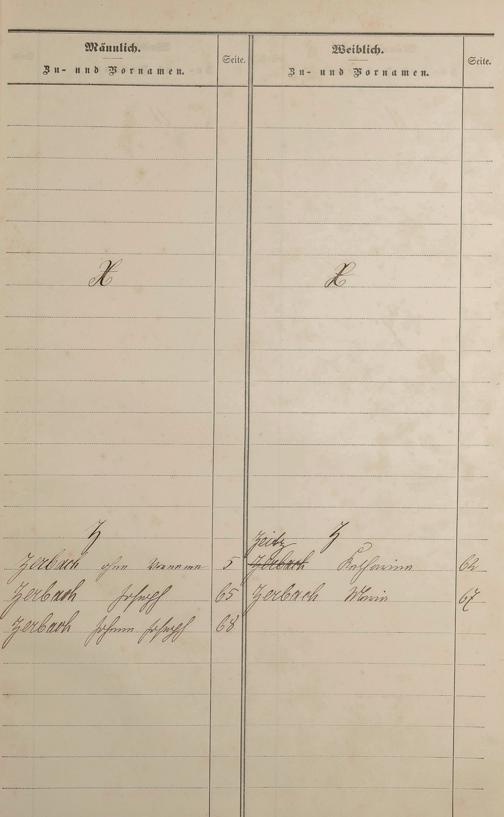 Männlich.
Zu- und Vornamen.
Seite.
Weiblich.
Zu- und Vornamen.
Seite.
X
X
Z
Z
Zerbach ohne Vorname 5
Zeitz
Zerbach Katharina 62
Zerbach Joseph 65
Zerbach Maria 67
Zerbach Johann Joseph 68